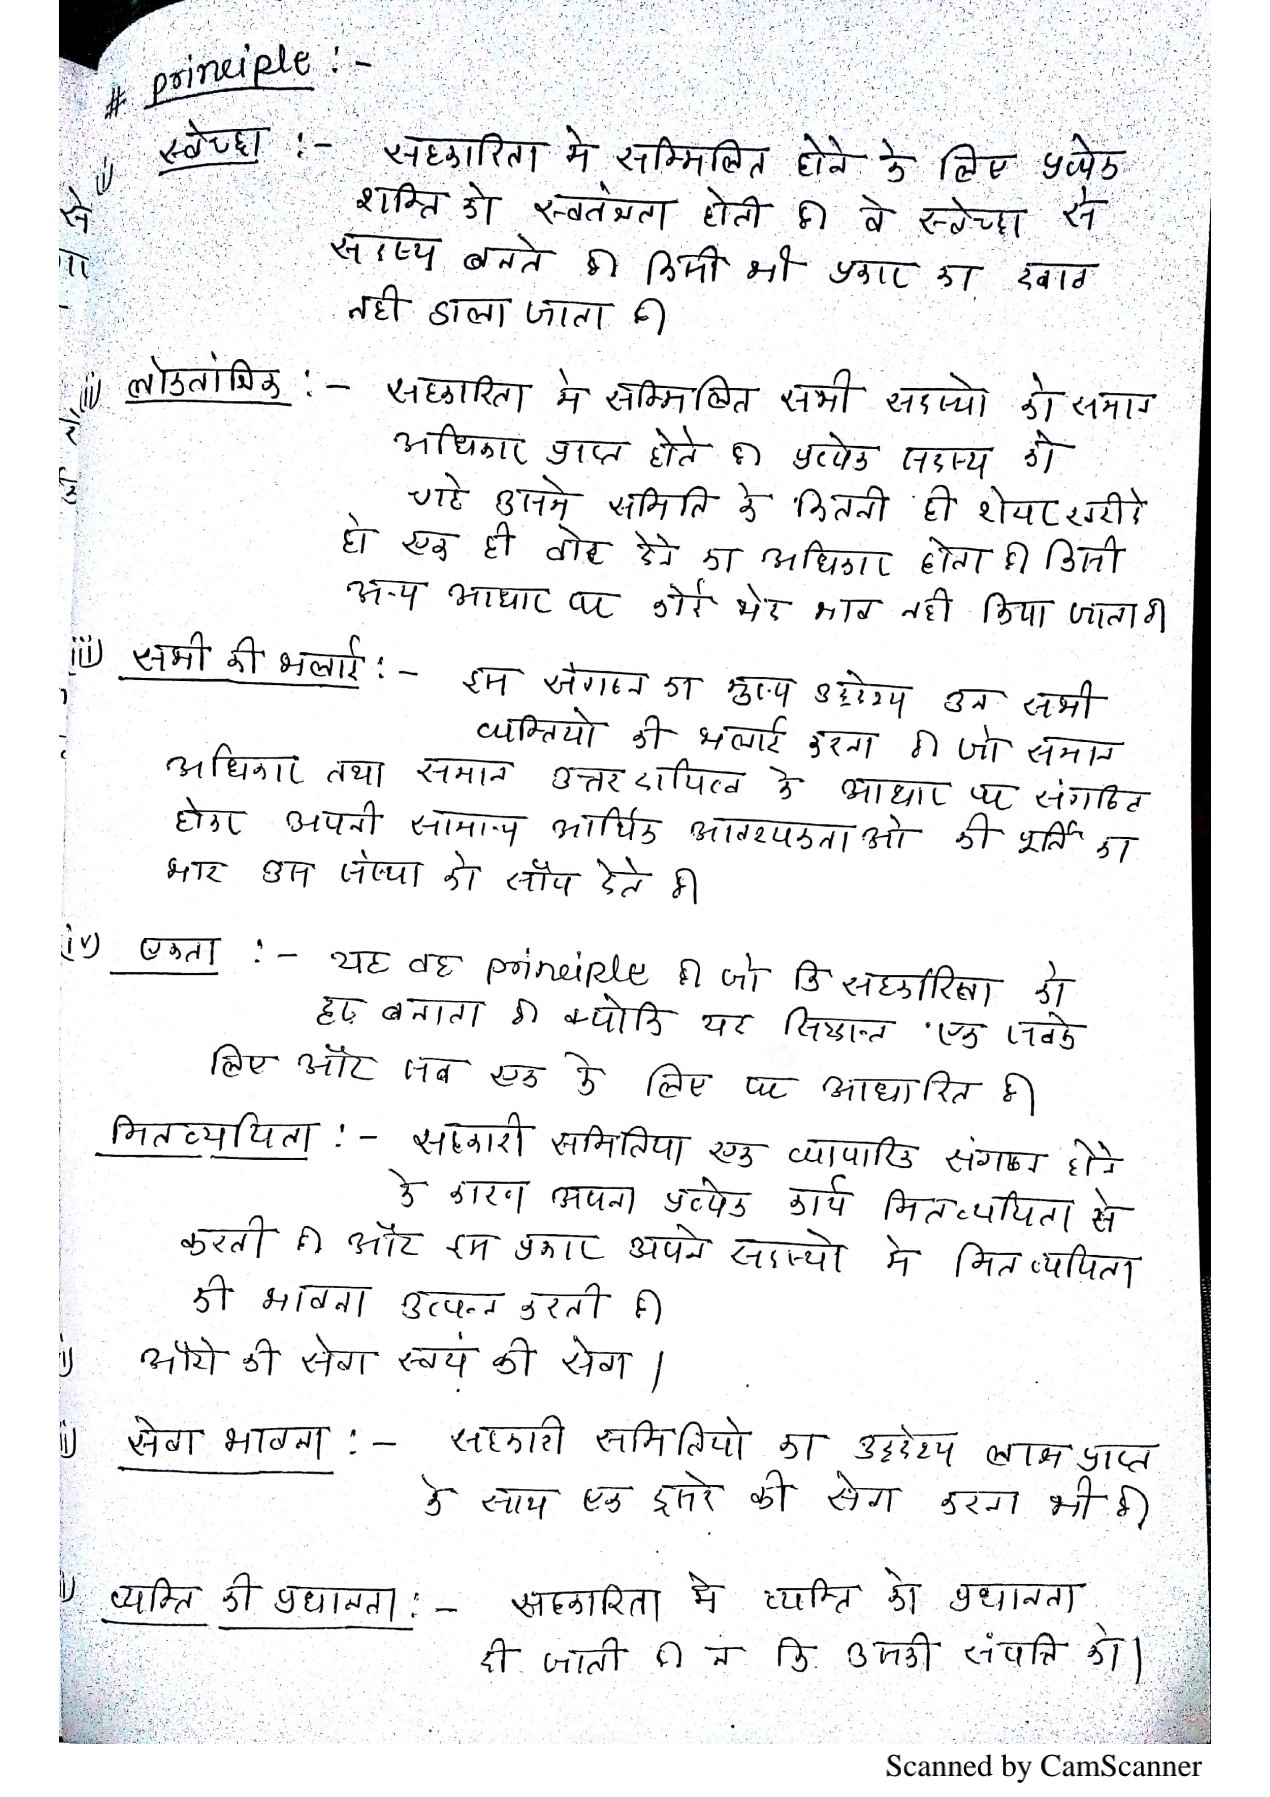 # principle :-
i) स्वेच्छा :- सहकारिता मे सम्मिलित होने के लिए प्रत्येक
शक्ति को स्वतंत्रता होती है। वे स्वेच्छा से
सदस्य बनते है। किसी भी प्रकार का दबाव
नही डाला जाता है।
ii) लोकतांत्रिक :- सहकारिता मे सम्मिलित सभी सदस्यो को समान
अधिकार प्राप्त होते है। प्रत्येक सदस्य को
चाहे उसमे समिति के कितनी ही शेयर खरीदे
हो एक ही वोट देने का अधिकार होता है। किसी
अन्य आधार पर कोई भेद भाव नही किया जाता है।
iii) सभी की भलाई :- इस संगठन का मुख्य उद्देश्य उन सभी
व्यक्तियो की भलाई करना है। जो समान
अधिकार तथा समान उत्तरदायित्व के आधार पर संगठित
होकर अपनी सामान्य आर्थिक आवश्यकताओ की पूर्ति का
भार उस संस्था को सौंप देते है।
iv) एकता :- यह वह principle है। जो कि सहकारिता को
दृढ़ बनाता है। क्योकि यह सिद्धान्त 'एक सबके
लिए और सब एक के लिए पर आधारित है।
मितव्ययिता :- सहकारी समितिया एक व्यापारिक संगठन होने
के कारण अपना प्रत्येक कार्य मितव्ययिता से
करती है। और इस प्रकार अपने सदस्यो मे मितव्ययिता
की भावना उत्पन्न करती है।
i) औरो की सेवा स्वयं की सेवा।
i) सेवा भावना :- सहकारी समितियो का उद्देश्य लाभ प्राप्त
के साथ एक दूसरे की सेवा करना भी है।
i) व्यक्ति की प्रधानता :- सहकारिता मे व्यक्ति को प्रधानता
दी जाती है। न कि उसकी संपत्ति को।
Scanned by CamScanner